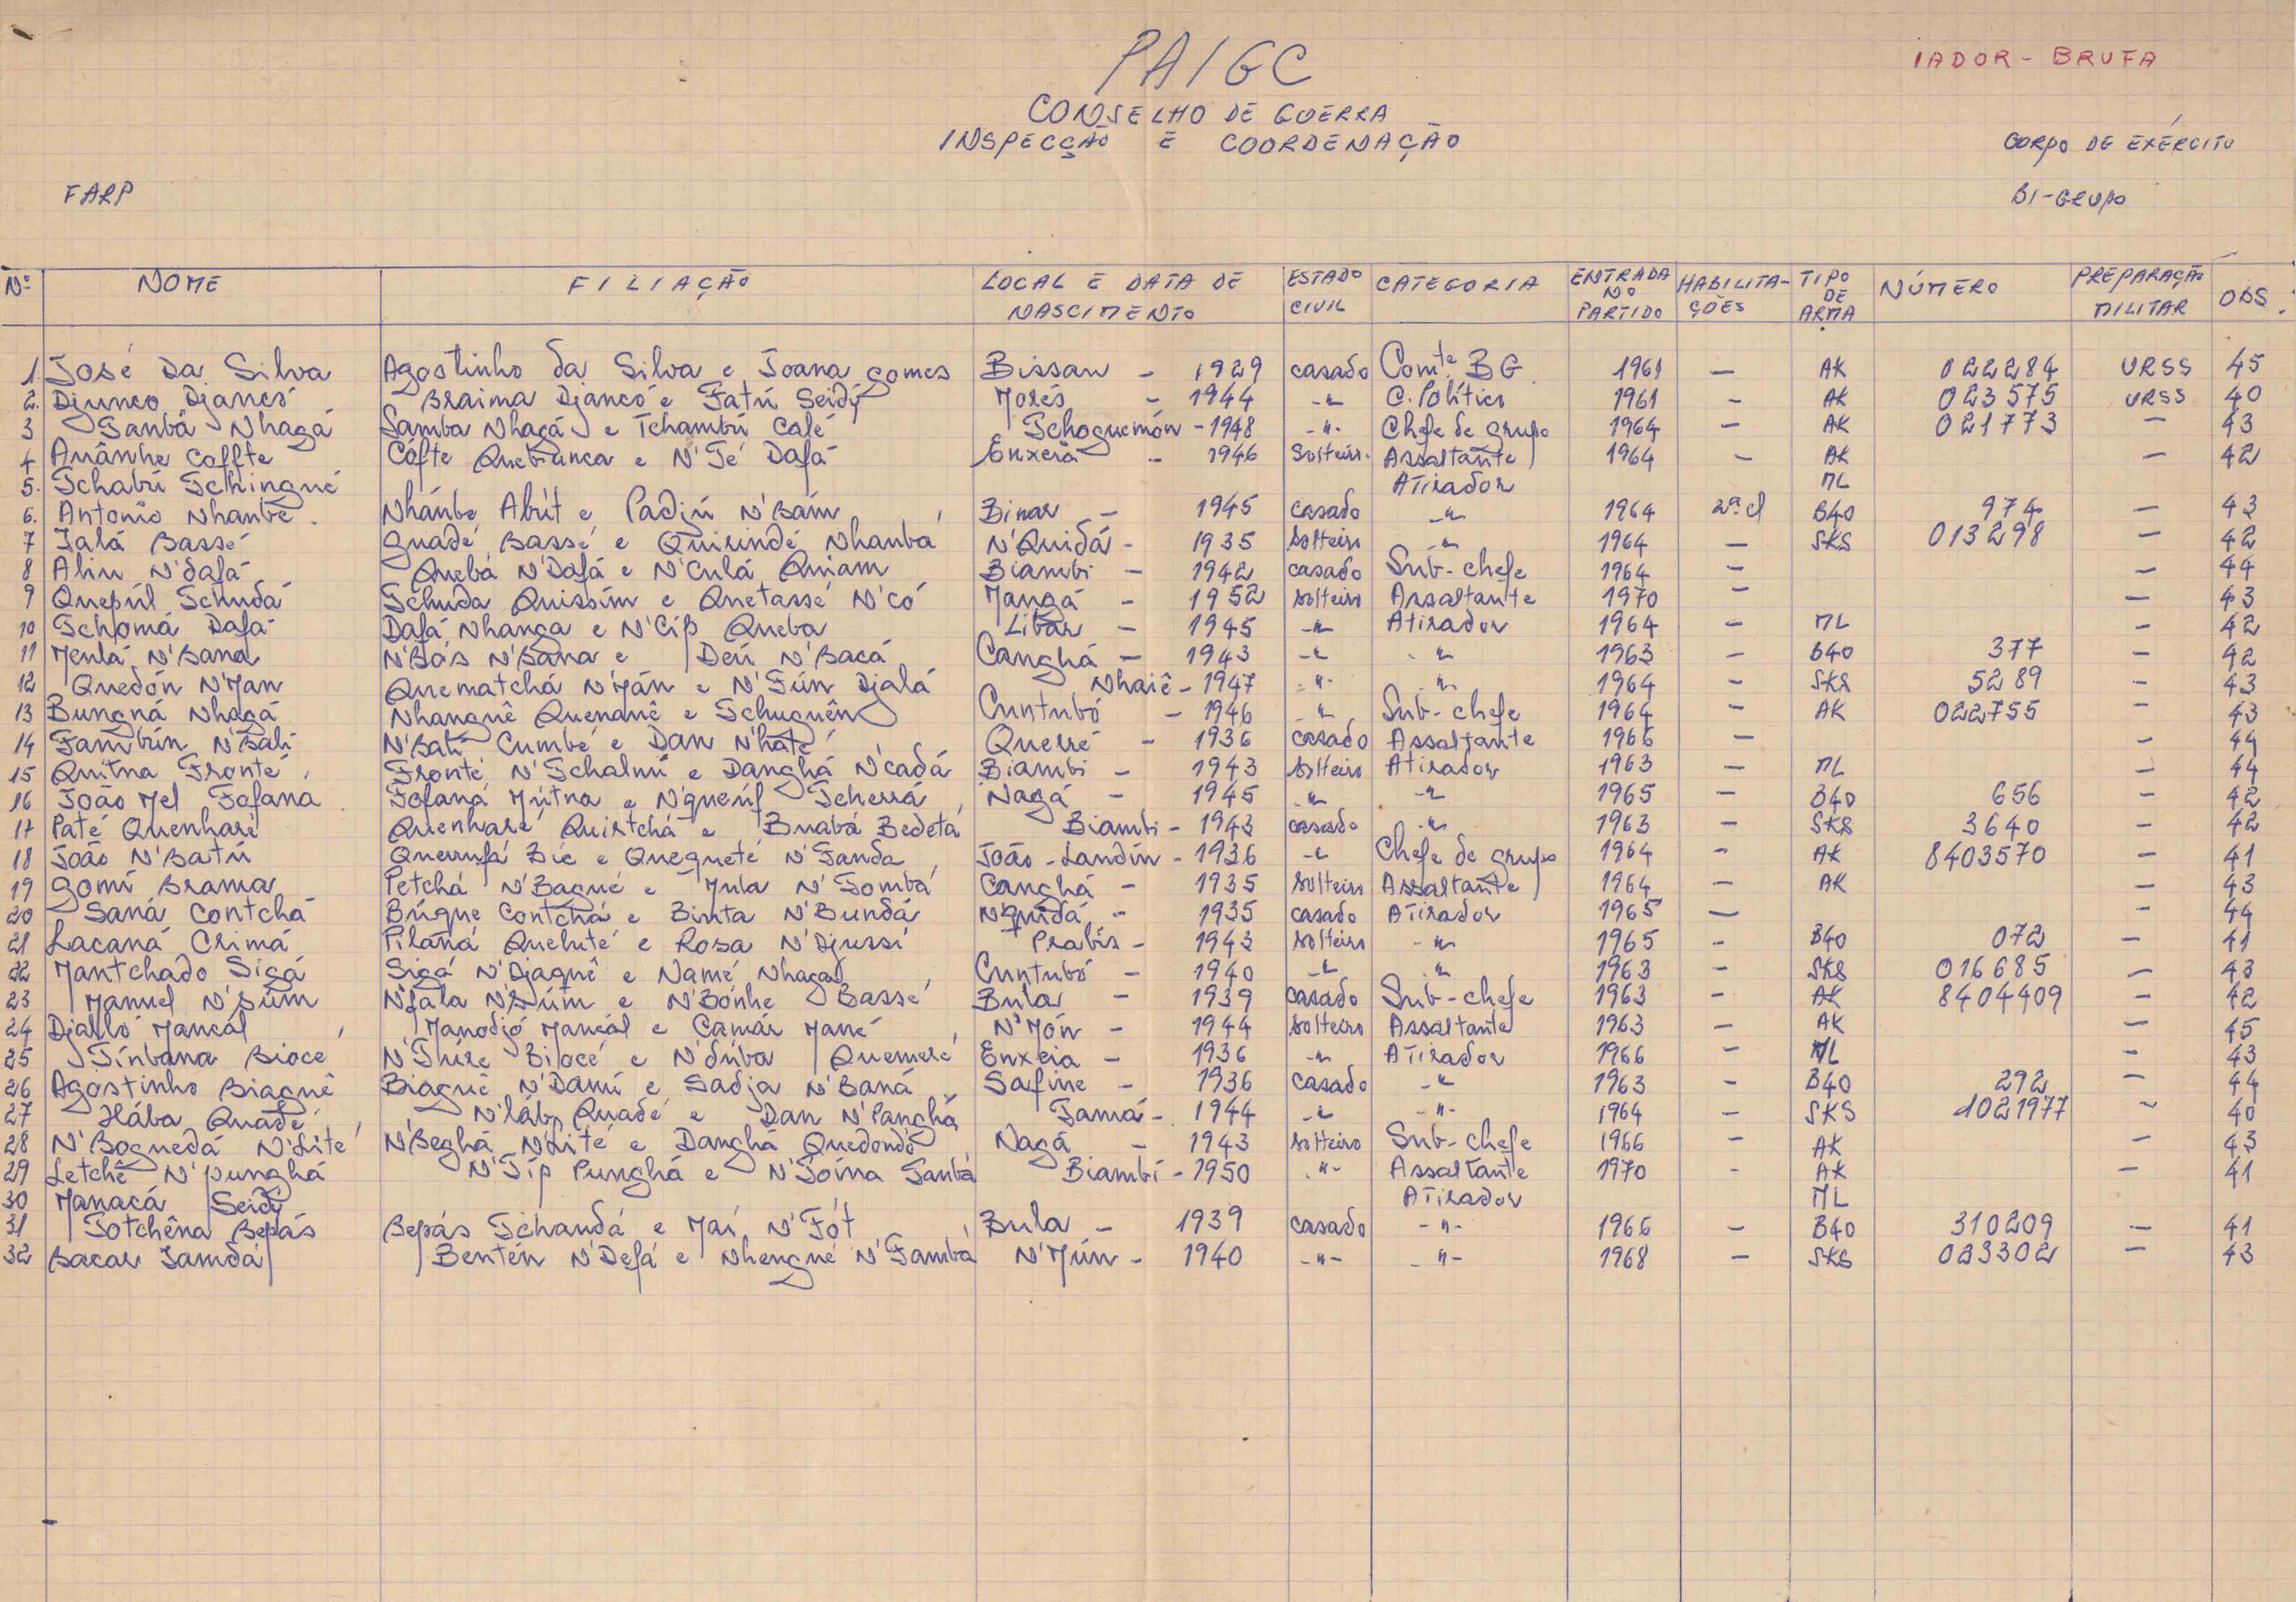 PAIGC
IADOR - BRUFA
CONSELHO DE GUERRA
INSPECÇÃO E COORDENAÇÃO
CORPO DE EXÉRCITO
FARP
BI-GRUPO
Nº NOME FILIAÇÃO LOCAL E DATA DE NASCIMENTO ESTADO CIVIL CATEGORIA ENTRADA NO PARTIDO HABILITA-ÇÕES TIPO DE ARMA NÚMERO PREPARAÇÃO MILITAR OBS.
1. José Da Silva Agostinho da Silva e Joana gomes Bissau - 1929 casado Comte BG 1961 — AK 022284 URSS 45
2. Djunco Djancó Braima Djancó e Fatú Seidy Morés - 1944 -"- C. Político 1961 - AK 023575 URSS 40
3 Sambá Nhagá Samba Nhagá e Tchambú Calé Tchoguemón - 1948 -"- Chefe de grupo 1964 - AK 021773 — 43
4 Anânhe Coffte Cófte Quebunca e N'Té Dafá Enxeiā - 1946 Solteiro Assaltante 1964 - AK — 42
5. Tchabú Tchingué Atirador ML
6. Antonio Nhambé Nhánbe Abút e Padjú N'Bám Binar - 1945 casado -"- 1964 2ª cl B40 974 — 43
7 Ialá Bassé guadé Bassé e Quirindé Nhanbá N'Quidá - 1935 solteiro -"- 1964 — SKS 013298 — 42
8 Aliu N'dafá Quebá N'Dafá e N'Culá Quiam Biambi - 1942 casado Sub-chefe 1964 — — 44
9 Quepúl Tchudá Tchuda Quissím e Quetassé N'có Mangá - 1952 solteiro Assaltante 1970 — — 43
10 Tchomá Dafá Dafá Nhanga e N'Cíp Queba Libár - 1945 -"- Atirador 1964 - ML - 42
11 Menlá N'Bana N'Bás N'Bana e Deú N'Bacá Canghá - 1943 -"- -"- 1963 - B40 377 - 42
12 Quedón N'Man Quematchá N'Mán e N'Tún Djalá Nhaiê - 1947 -"- -"- 1964 - SKS 5289 - 43
13 Bungná Nhagá Nhanguê Quenanê e Tchuguên Cuntubó - 1946 -"- Sub-chefe 1964 - AK 022755 - 43
14 Tambún N'Bali N'Bati Cumbé e Dan N'haté Querré - 1936 casado Assaltante 1966 - - 44
15 Quitna Fronté Fronté N'Tchalmí e Danghá N'cadá Biambi - 1943 solteiro Atirador 1963 - ML - 44
16 João Mel Fofana Fofaná Mútna e N'queúf Tcherrá Nagá - 1945 -"- -"- 1965 - B40 656 - 42
17 Paté Quenharé Quenharé Quistchá e Buabá Bedetá Biambi - 1943 casado -"- 1963 - SKS 3640 - 42
18 João N'Batú Querrufá Bié e Quegueté N'Tanda João-Landín - 1936 -"- Chefe de grupo 1964 - AK 8403570 - 41
19 gomí Brama Petchá N'Bagué e Mula N'Tombá Canghá - 1935 solteiro Assaltante 1964 - AK - 43
20 Saná Contchá Búgue Contchá e Binta N'Bundá N'quidá - 1935 casado Atirador 1965 — - 44
21 Lacaná Crimá Pilaná Queluté e Rosa N'Djussí Prabís - 1943 solteiro -"- 1965 - B40 072 - 41
22 Mantchado Sigá Sigá N'Djaguê e Namé Nhaga Cuntubó - 1940 -"- -"- 1963 - SKS 016685 - 43
23 Manuel N'Súm N'fala N'Súm e N'Bónhe Bassé Bula - 1939 casado Sub-chefe 1963 - AK 8404409 - 42
24 Djalló Mancál Manodjó Mancál e Camár Mané N'Món - 1944 solteiro Assaltante 1963 - AK - 45
25 Tínbana Biocé N'Túre Biocé e N'dúba Quemeré Enxeia - 1936 -"- Atirador 1966 - ML - 43
26 Agostinho Biaguê Biaguê N'Damí e Sadja N'Baná Safine - 1936 casado -"- 1963 - B40 292 - 44
27 Hába Quadé N'lába Quadé e Dan N'Panghá Tamá - 1944 -"- -"- 1964 - SKS 1021977 - 40
28 N'Boguedá N'Lité N'Beghá N'Lité e Danghá Quedondó Nagá - 1943 solteiro Sub-chefe 1966 - AK - 43
29 Letchê N'punghá N'Típ Punghá e N'Toína Tambá Biambí - 1950 -"- Assaltante 1970 - AK - 41
30 Manacá Seidy Atirador ML
31 Totchêna Bepás Bepás Tchandá e Maí N'Fót Bula - 1939 casado -"- 1966 - B40 310209 - 41
32 Bacar Iamdá Bentén N'Defá e Nhengué N'Tambá N'Mún - 1940 -"- -"- 1968 - SKS 033302 - 43